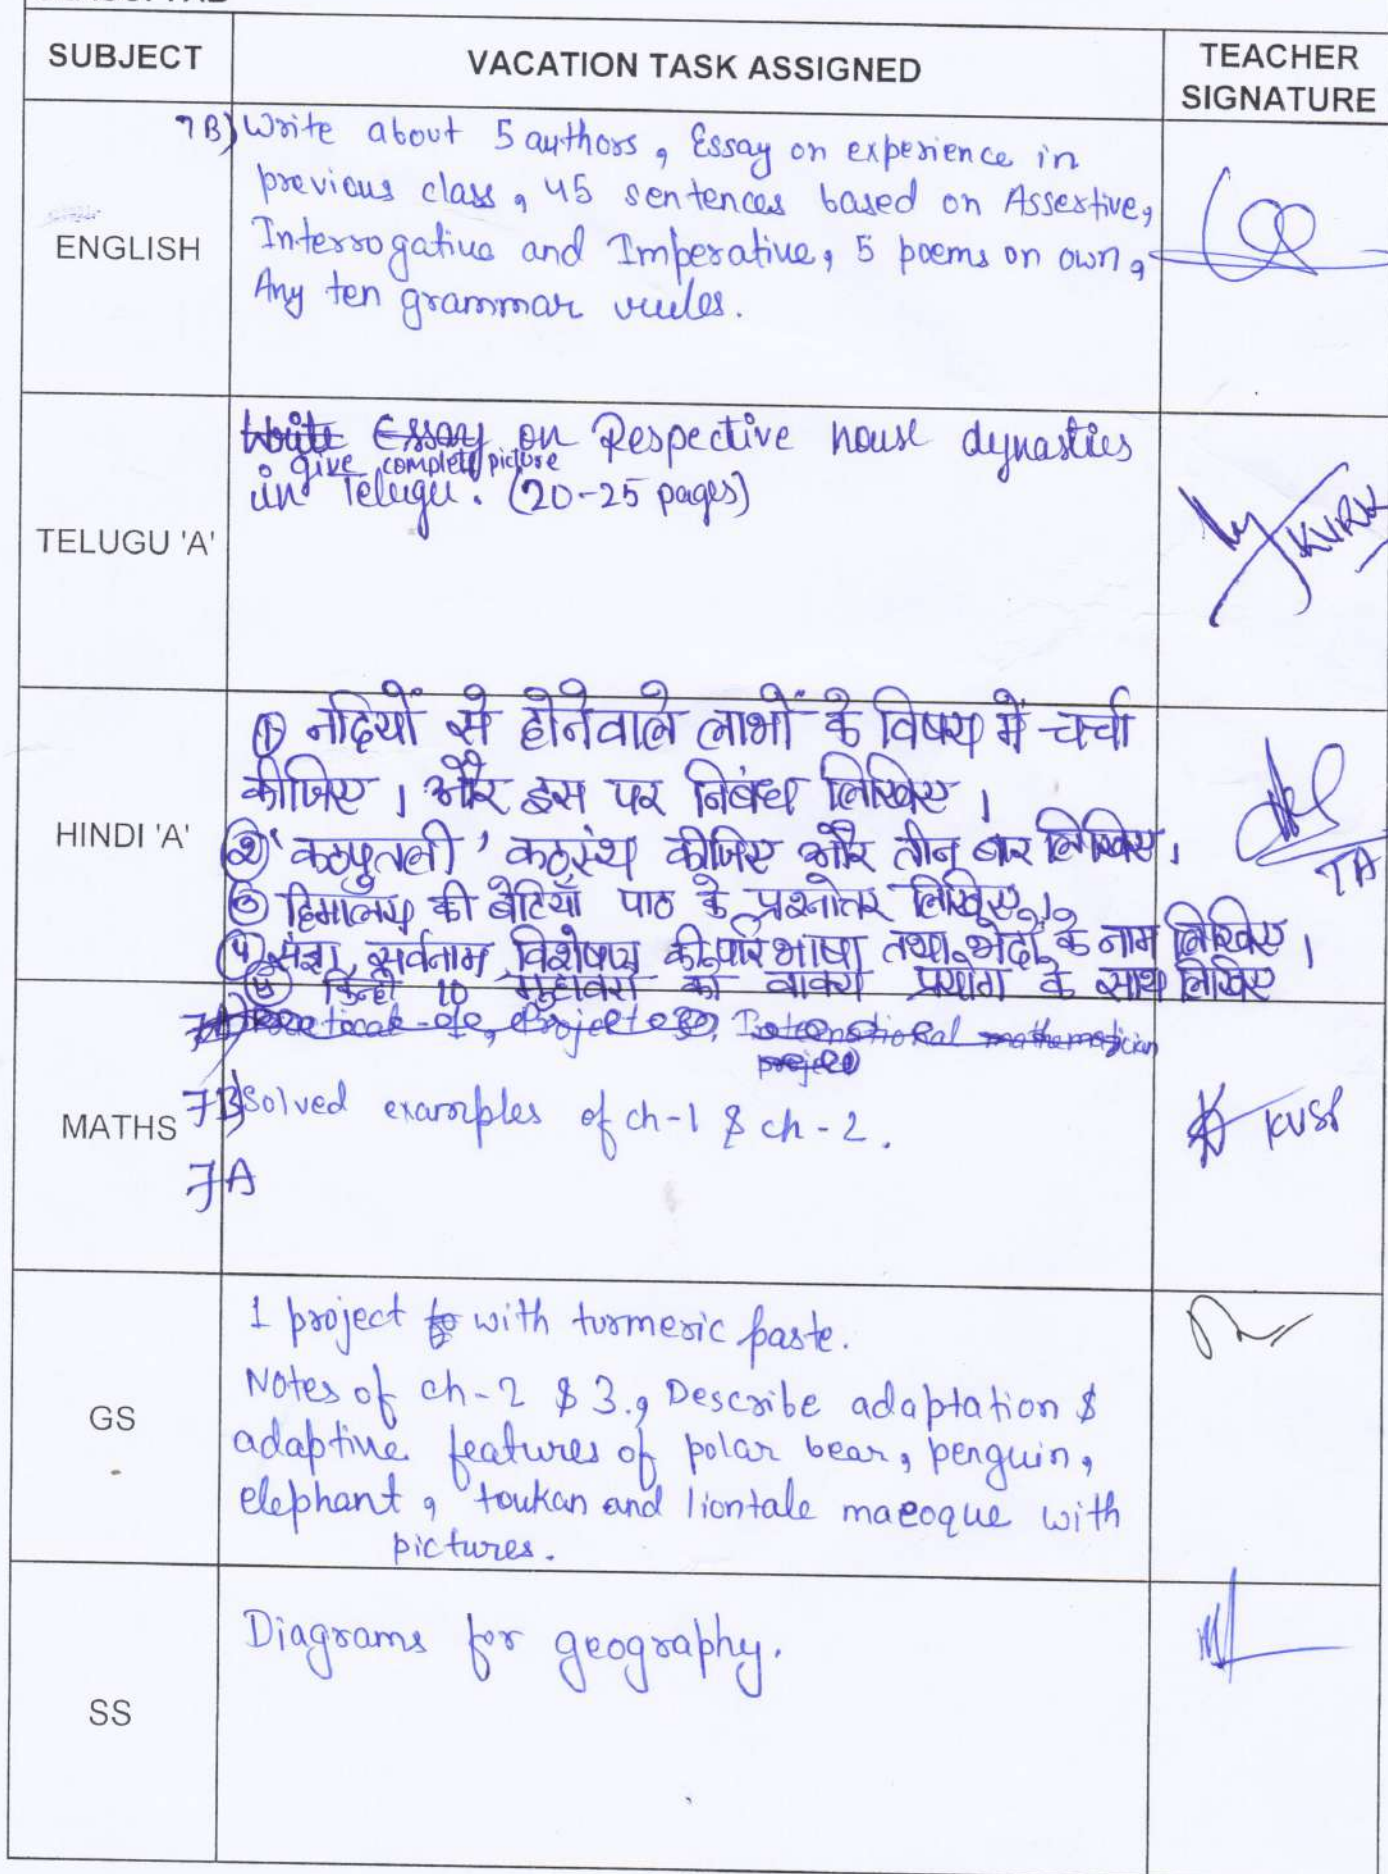 SUBJECT
VACATION TASK ASSIGNED
TEACHER
SIGNATURE
ENGLISH
7B) Write about 5 authors, Essay on experience in
previous class, 45 sentences based on Assertive,
Interrogative and Imperative, 5 poems on own,
Any ten grammar rules.
TELUGU 'A'
Write Essay on Respective house dynasties
give complete picture
in Telugu. (20-25 pages)
KVRK
HINDI 'A'
① नदियों से होनेवाले लाभों के विषय में चर्चा
कीजिए। और इस पर निबंध लिखिए।
② 'कठपुतली' कठस्थ कीजिए और तीन बार लिखिए।
③ हिमालय की बेटियाँ पाठ के प्रश्नोतर लिखिए।
④ संज्ञा, सर्वनाम, विशेषण की परिभाषा तथा भेदों के नाम लिखिए।
⑤ किन्ही 10 मुहावरों को वाक्य प्रयोग के साथ लिखिए
TA
MATHS
International mathematician
project
7B) Solved examples of ch-1 & ch-2.
7A
GS
1 project with turmeric paste.
Notes of ch-2 & 3., Describe adaptation &
adaptive features of polar bear, penguin,
elephant, toukan and liontale macoque with
pictures.
SS
Diagrams for geography.